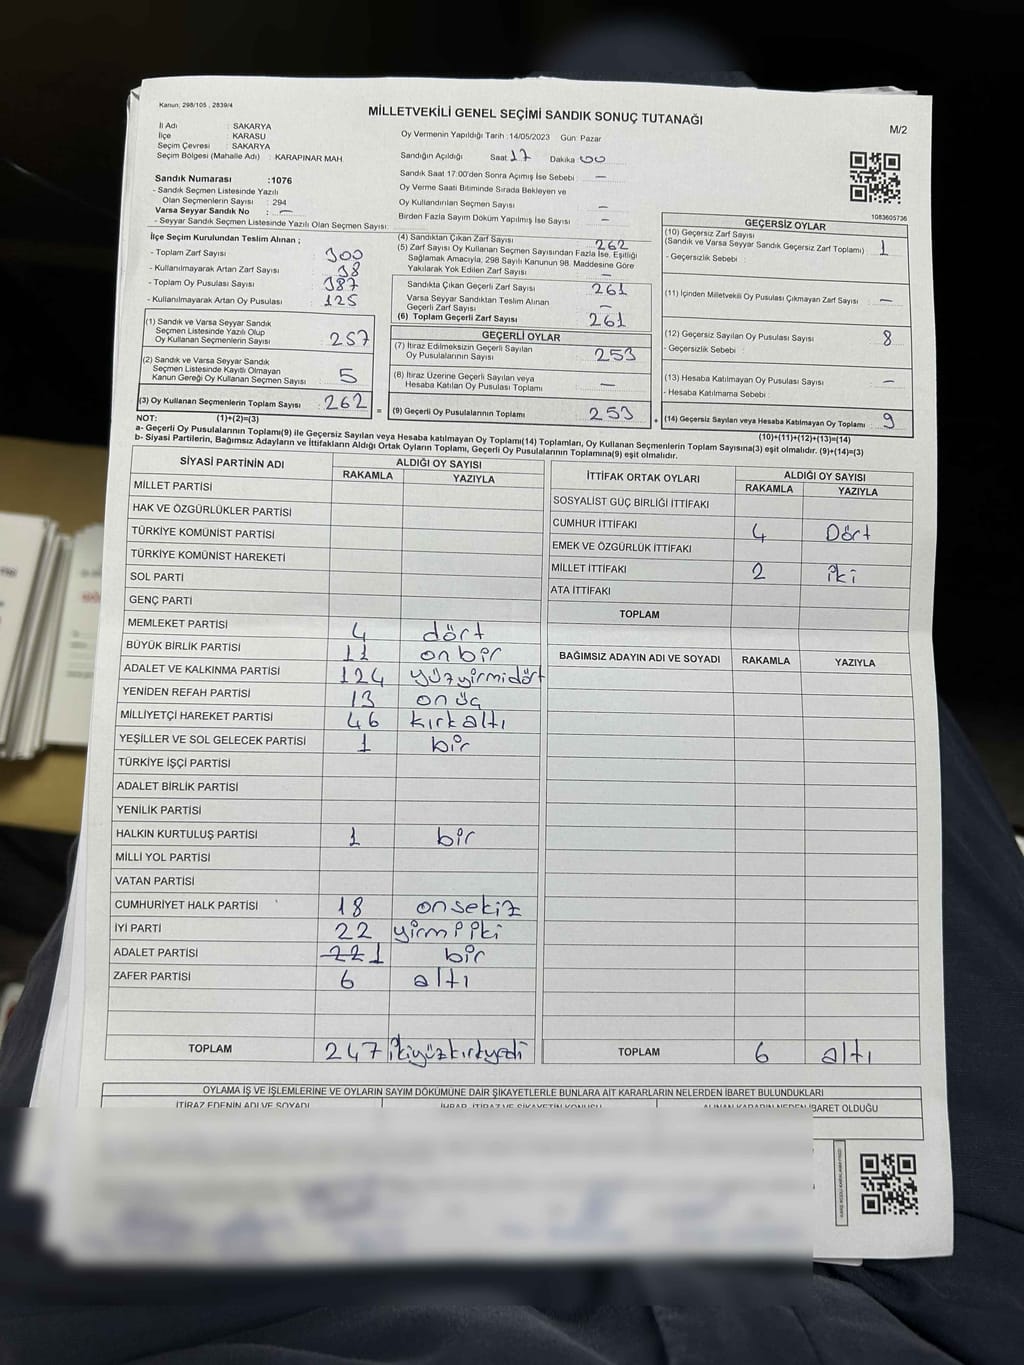 Kanun; 298/105 , 2839/4
MİLLETVEKİLİ GENEL SEÇİMİ SANDIK SONUÇ TUTANAĞI
M/2
İl Adı : SAKARYA
İlçe : KARASU
Seçim Çevresi : SAKARYA
Seçim Bölgesi (Mahalle Adı) : KARAPINAR MAH.
Oy Vermenin Yapıldığı Tarih : 14/05/2023 Gün: Pazar
Sandığın Açıldığı Saat 17 Dakika 00
Sandık Saat 17:00'den Sonra Açımış İse Sebebi : —
Oy Verme Saati Bitiminde Sırada Bekleyen ve
Oy Kullandırılan Seçmen Sayısı : —
Birden Fazla Sayım Döküm Yapılmış İse Sayısı : —
Sandık Numarası :1076
- Sandık Seçmen Listesinde Yazılı
Olan Seçmenlerin Sayısı : 294
Varsa Seyyar Sandık No : —
- Seyyar Sandık Seçmen Listesinde Yazılı Olan Seçmen Sayısı:
1083605736
İlçe Seçim Kurulundan Teslim Alınan ;
- Toplam Zarf Sayısı : 300
- Kullanılmayarak Artan Zarf Sayısı : 38
- Toplam Oy Pusulası Sayısı : 387
- Kullanılmayarak Artan Oy Pusulası : 125
(1) Sandık ve Varsa Seyyar Sandık
Seçmen Listesinde Yazılı Olup
Oy Kullanan Seçmenlerin Sayısı : 257
(2) Sandık ve Varsa Seyyar Sandık
Seçmen Listesinde Kayıtlı Olmayan
Kanun Gereği Oy Kullanan Seçmen Sayısı : 5
(3) Oy Kullanan Seçmenlerin Toplam Sayısı : 262
(4) Sandıktan Çıkan Zarf Sayısı : 262
(5) Zarf Sayısı Oy Kullanan Seçmen Sayısından Fazla İse, Eşitliği
Sağlamak Amacıyla, 298 Sayılı Kanunun 98. Maddesine Göre
Yakılarak Yok Edilen Zarf Sayısı : —
Sandıkta Çıkan Geçerli Zarf Sayısı : 261
Varsa Seyyar Sandıktan Teslim Alınan
Geçerli Zarf Sayısı : —
(6) Toplam Geçerli Zarf Sayısı : 261
GEÇERLİ OYLAR
(7) İtiraz Edilmeksizin Geçerli Sayılan
Oy Pusulalarının Sayısı : 253
(8) İtiraz Üzerine Geçerli Sayılan veya
Hesaba Katılan Oy Pusulası Toplamı : —
(9) Geçerli Oy Pusulalarının Toplamı : 253
GEÇERSİZ OYLAR
(10) Geçersiz Zarf Sayısı
(Sandık ve Varsa Seyyar Sandık Geçersiz Zarf Toplamı) : 1
- Geçersizlik Sebebi :
(11) İçinden Milletvekili Oy Pusulası Çıkmayan Zarf Sayısı : —
(12) Geçersiz Sayılan Oy Pusulası Sayısı : 8
- Geçersizlik Sebebi :
(13) Hesaba Katılmayan Oy Pusulası Sayısı : —
- Hesaba Katılmama Sebebi :
(14) Geçersiz Sayılan veya Hesaba Katılmayan Oy Toplamı : 9
NOT: (1)+(2)=(3)
(10)+(11)+(12)+(13)=(14)
a- Geçerli Oy Pusulalarının Toplamı(9) ile Geçersiz Sayılan veya Hesaba katılmayan Oy Toplamı(14) Toplamları, Oy Kullanan Seçmenlerin Toplam Sayısına(3) eşit olmalıdır. (9)+(14)=(3)
b- Siyasi Partilerin, Bağımsız Adayların ve İttifakların Aldığı Ortak Oyların Toplamı, Geçerli Oy Pusulalarının Toplamına(9) eşit olmalıdır.
SİYASİ PARTİNİN ADI ALDIĞI OY SAYISI
RAKAMLA YAZIYLA
MİLLET PARTİSİ
HAK VE ÖZGÜRLÜKLER PARTİSİ
TÜRKİYE KOMÜNİST PARTİSİ
TÜRKİYE KOMÜNİST HAREKETİ
SOL PARTİ
GENÇ PARTİ
MEMLEKET PARTİSİ 4 dört
BÜYÜK BİRLİK PARTİSİ 11 onbir
ADALET VE KALKINMA PARTİSİ 124 yüzyirmidört
YENİDEN REFAH PARTİSİ 13 onüç
MİLLİYETÇİ HAREKET PARTİSİ 46 kırkaltı
YEŞİLLER VE SOL GELECEK PARTİSİ 1 bir
TÜRKİYE İŞÇİ PARTİSİ
ADALET BİRLİK PARTİSİ
YENİLİK PARTİSİ
HALKIN KURTULUŞ PARTİSİ 1 bir
MİLLİ YOL PARTİSİ
VATAN PARTİSİ
CUMHURİYET HALK PARTİSİ 18 onsekiz
İYİ PARTİ 22 yirmiiki
ADALET PARTİSİ 22 1 bir
ZAFER PARTİSİ 6 altı
TOPLAM 247 ikiyüzkırkyedi
İTTİFAK ORTAK OYLARI ALDIĞI OY SAYISI
RAKAMLA YAZIYLA
SOSYALİST GÜÇ BİRLİĞİ İTTİFAKI
CUMHUR İTTİFAKI 4 Dört
EMEK VE ÖZGÜRLÜK İTTİFAKI
MİLLET İTTİFAKI 2 iki
ATA İTTİFAKI
TOPLAM
BAĞIMSIZ ADAYIN ADI VE SOYADI RAKAMLA YAZIYLA
TOPLAM 6 altı
OYLAMA İŞ VE İŞLEMLERİNE VE OYLARIN SAYIM DÖKÜMÜNE DAİR ŞİKAYETLERLE BUNLARA AİT KARARLARIN NELERDEN İBARET BULUNDUKLARI
İTİRAZ EDENİN ADI VE SOYADI İHBAR, İTİRAZ VE ŞİKAYETİN KONUSU ALINAN KARARIN NEDEN İBARET OLDUĞU